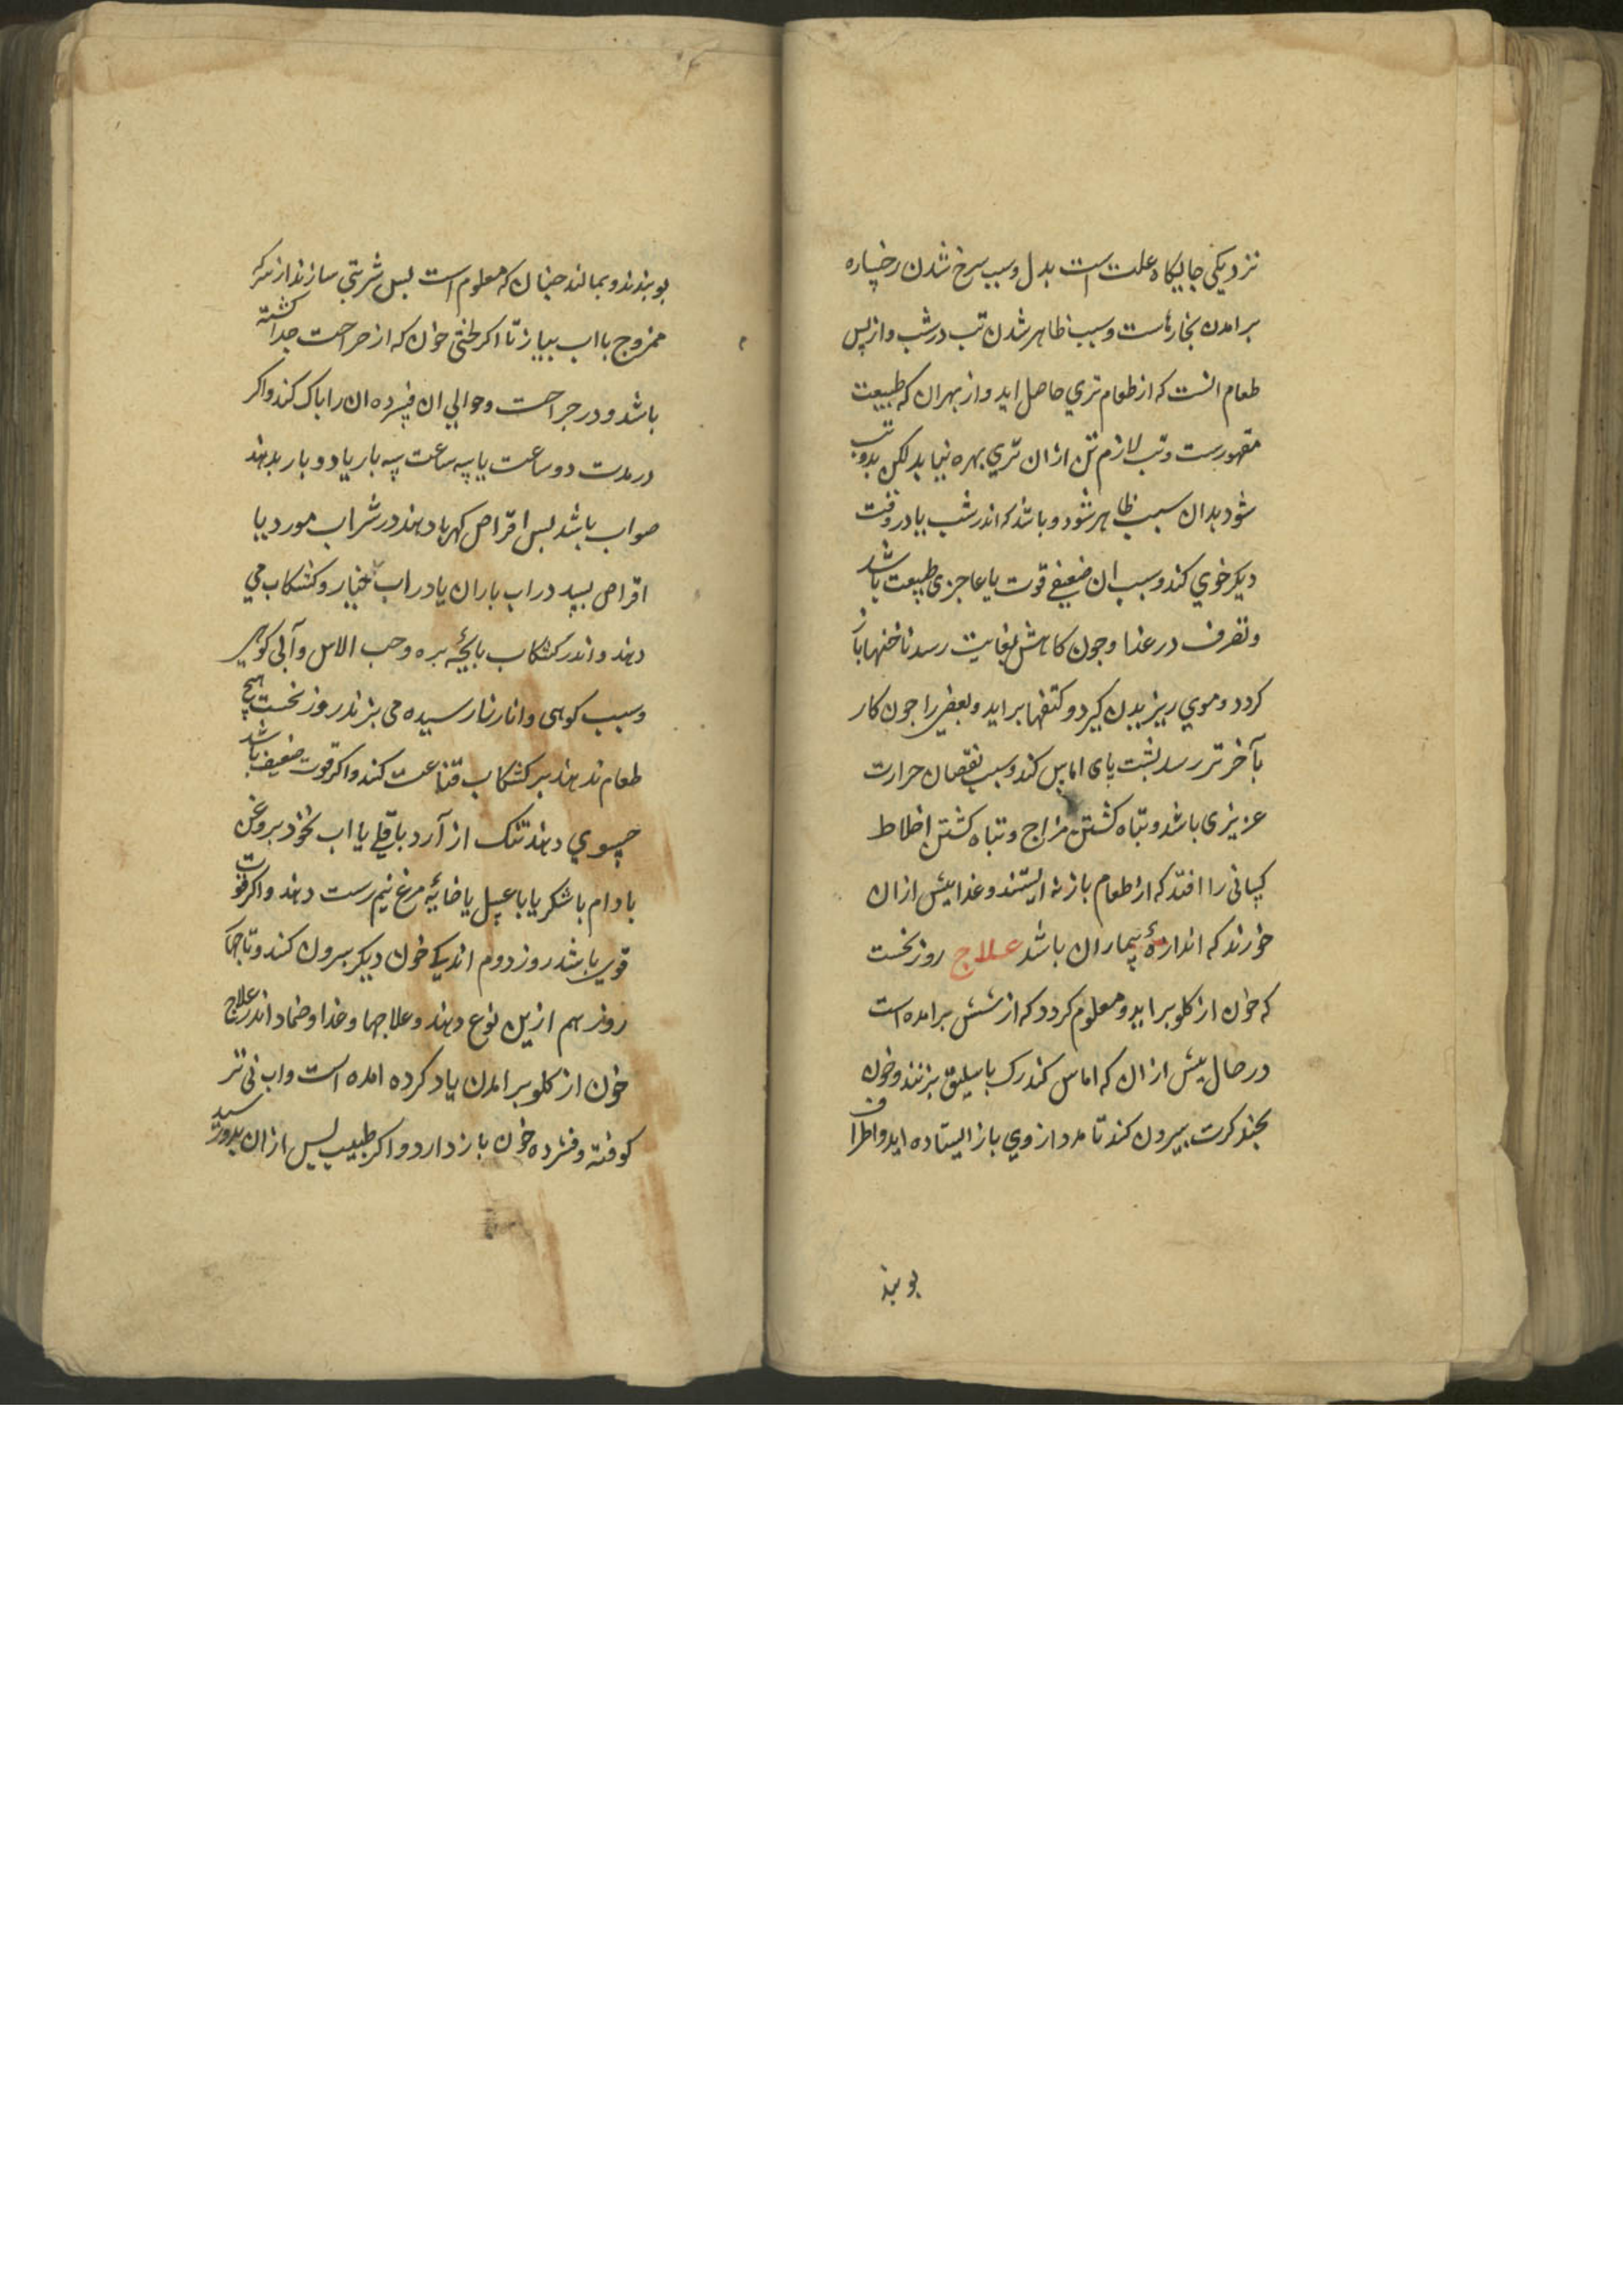 نزدیکی جایکاه علت است بدل وسبب سرخ شدن رخساره
برامدن بخارهاست وسبب ظاهر شدن تب در شب واز پس
طعام انست که از طعام تری حاصل اید واز بهر ان که طبیعت
مقهورست وتب لازم تن ازان تری بهره نیابد لکن بدو تب
شود بدان سبب ظاهر شود وباشد که اندر شب یا در وقت
دیکر خوی کند وسبب ان ضعیفی قوت یا عاجزی طبیعت باشد
وتصرف در غذا وجون کاهش بغایت رسد ناخنها باز
کردد وموی ریزیدن کیرد وکتفها براید وبعضی را جون کار
بآخر تر رسد پشت پای اماس کند وسبب نقصان حرارت
عزیزی باشد وتباه کشتن مزاج وتباه کشتن اخلاط
کسانی را افتد که از طعام باز نه ایستند وغذا بیش ازان
خورند که اندازهٔ بیماران باشد علاج روز نخست
که خون از کلو براید ومعلوم کردد که از شش برامده است
در حال پیش ازان که اماس کند رک باسلیق بزنند وخون
بچند کرت بیرون کند تا مدد از وی باز ایستاده اید واطراف
بوبند
بوبندند وبمالند جنان که معلوم است بس شربتی سازند از سرکه
ممزوج با اب بیاز تا اکر لختی خون که از جراحت جدا کشته
باشد ودر جراحت وحوالی ان فسرده ان را باک کند واکر
در مدت دو ساعت یا سه ساعت سه بار یا دو بار بدهند
صواب باشد بس اقراص کهربا دهند در شراب مورد یا
اقراص بسد در اب باران یا در اب خیار وکشکاب می
دهند واندر کشکاب باچهٔ بره وحب الاس وآبی کوهی
وسیب کوهی وانار نارسیده می بزند روز نخست هیچ
طعام ندهند بر کشکاب قناعت کند واکر قوت ضعیف باشد
حسوی دهند تنک از آرد باقلی یا اب نخود بروغن
بادام با شکر یا با عسل یا خایهٔ مرغ نیم رست دهند واکر قوت
قوی باشد روز دوم اندکی خون دیکر بیرون کند وتا جهار
روز هم ازین نوع دهند وعلاجها وغذا وضماد اندر علاج
خون از کلو برامدن یاد کرده امده است واب نی تر
کوفته وفشرده خون باز دارد واکر طبیب پس ازان بدو رسید